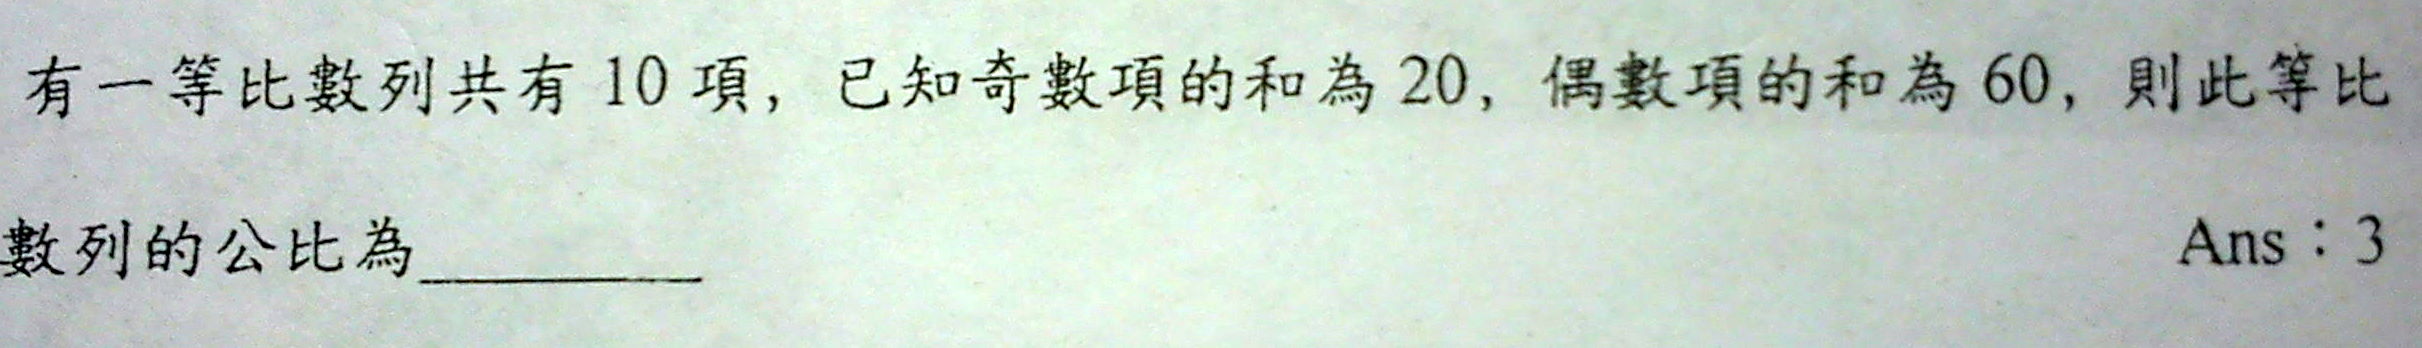 有一等比數列共有 10 項，已知奇數項的和為 20，偶數項的和為 60，則此等比
數列的公比為________ Ans：3